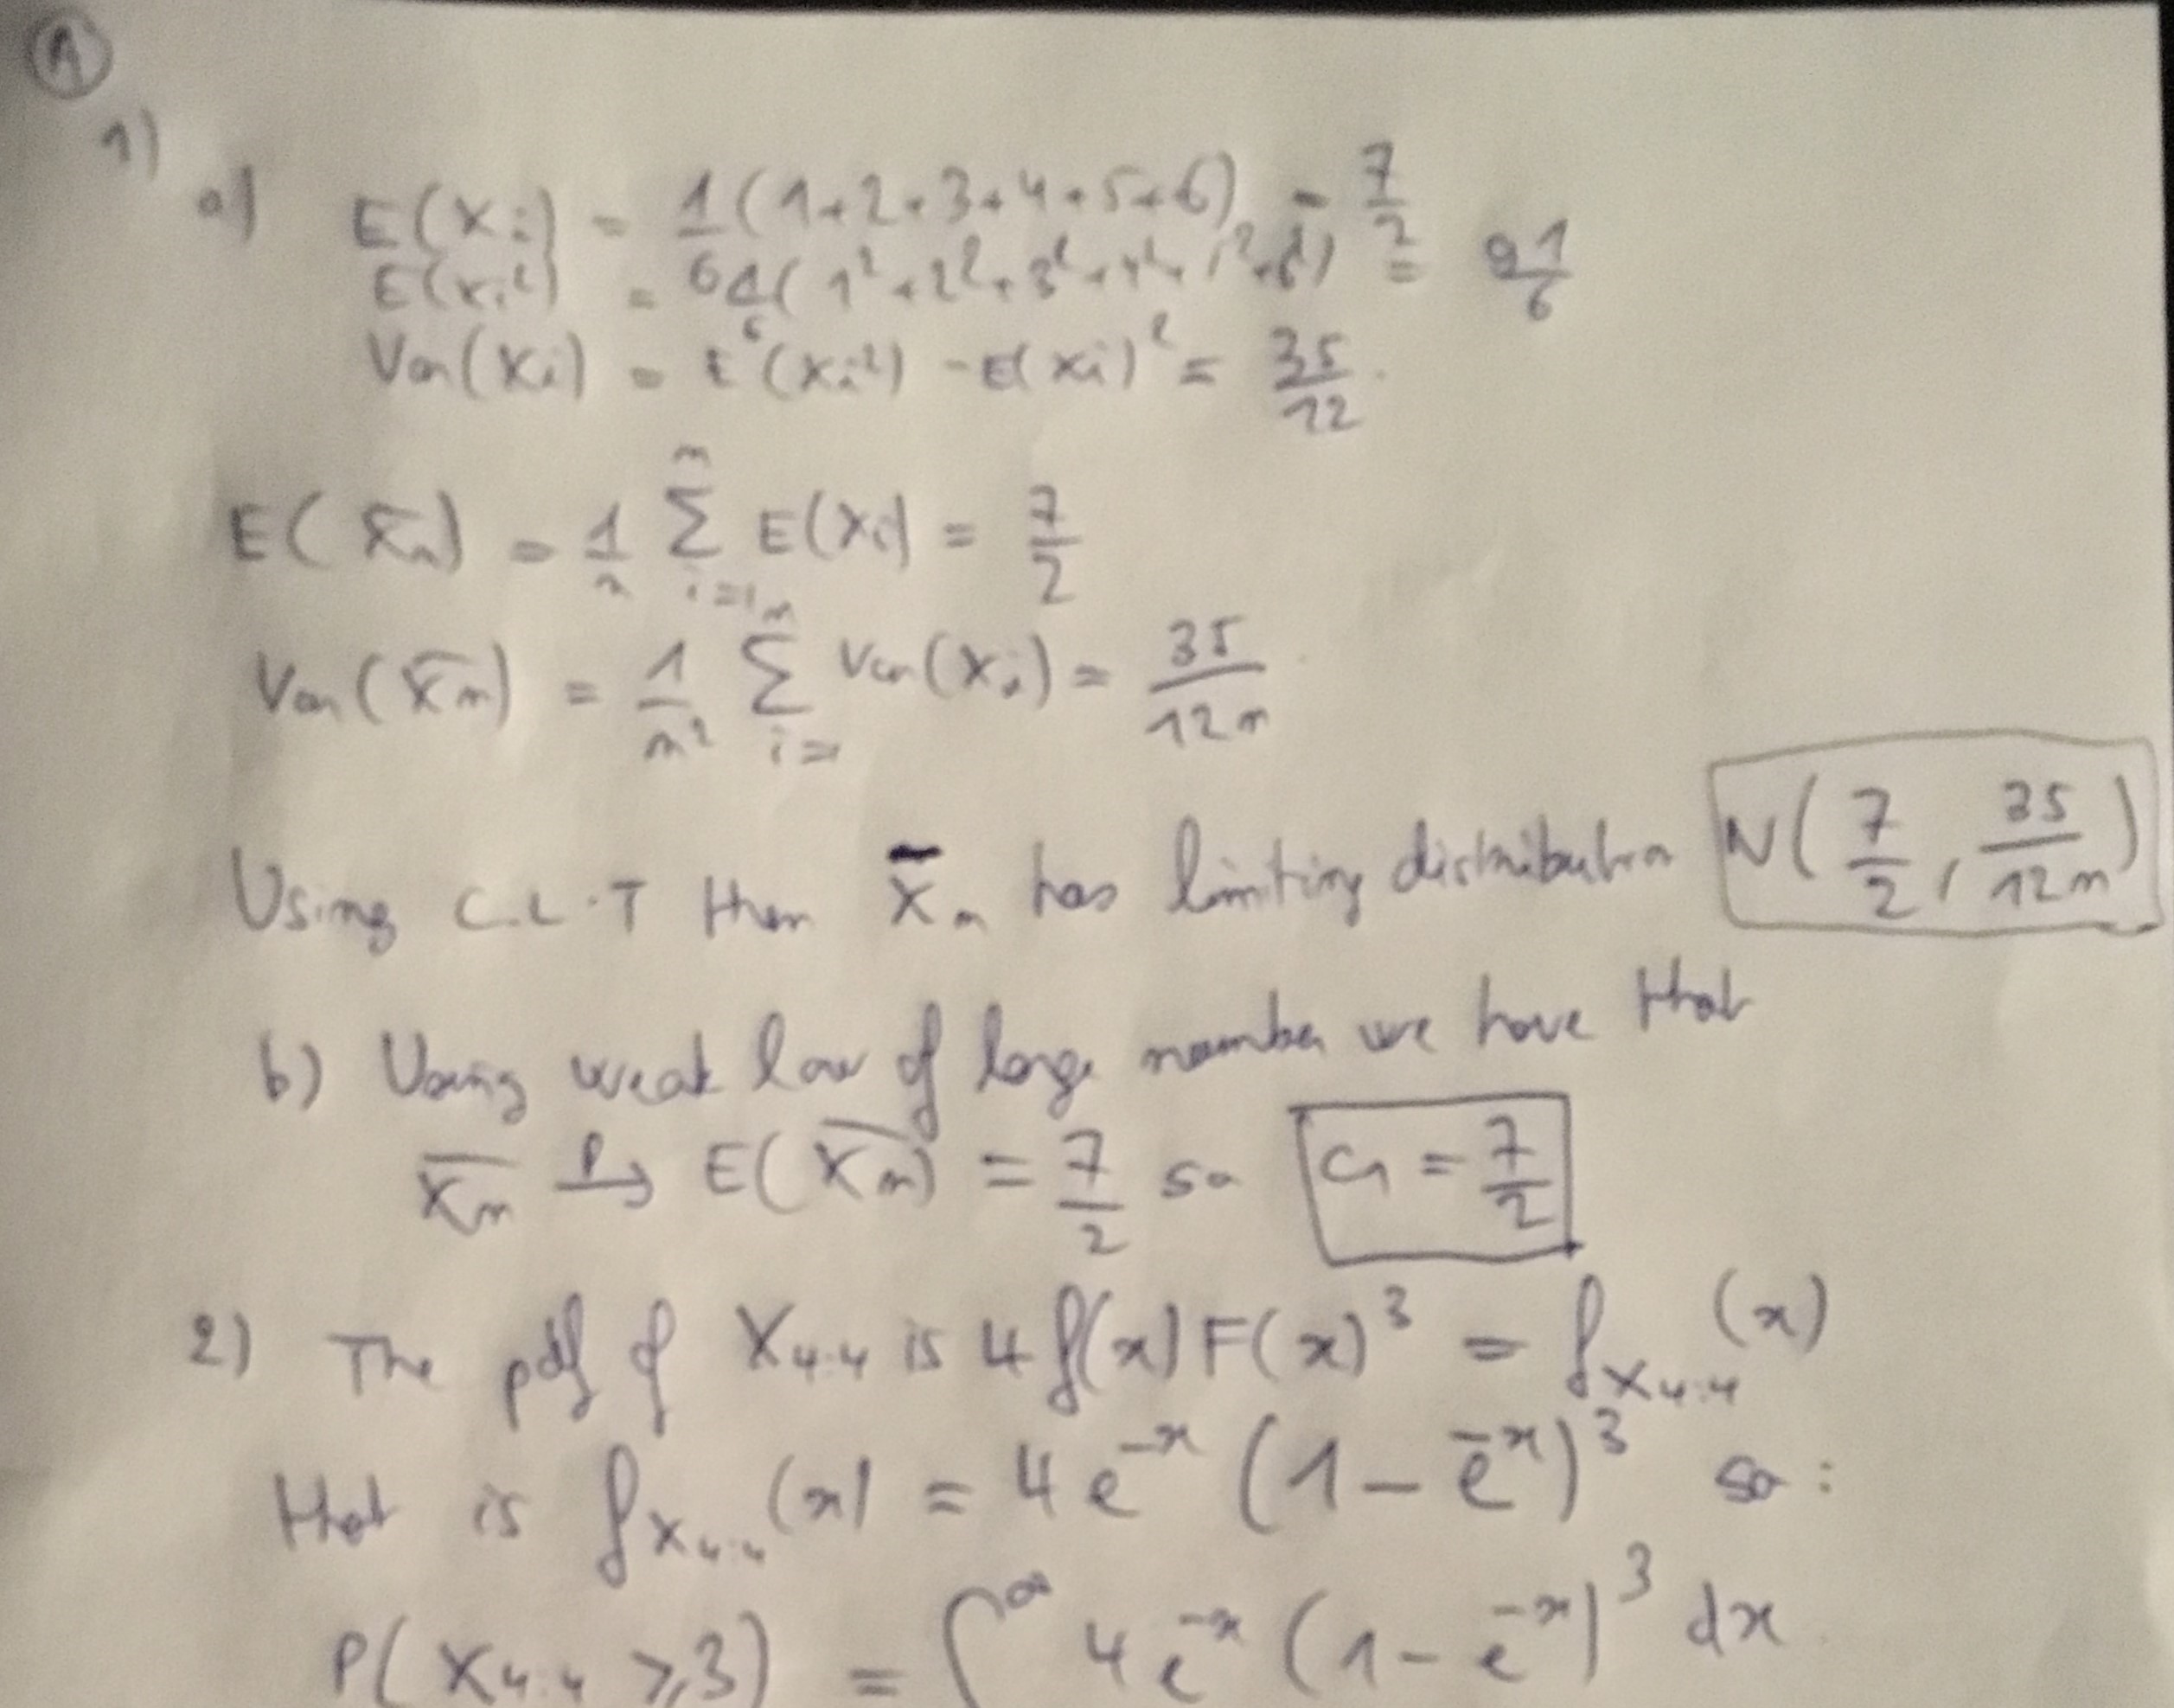 ①
1)
a) E(Xi) = 1/6 (1+2+3+4+5+6) = 7/2
E(Xi²) = 1/6 (1²+2²+3²+4²+5²+6²) = 91/6
Var(Xi) = E(Xi²) - E(Xi)² = 35/12.
E(X̄n) = 1/n Σ_{i=1}^{n} E(Xi) = 7/2
Var(X̄n) = 1/n² Σ_{i=1}^{n} Var(Xi) = 35/12n
Using C.L.T then X̄n has limiting distribution N(7/2, 35/12n)
b) Using weak law of large number we have that
X̄n →^P E(X̄n) = 7/2 so C₁ = 7/2
2) The pdf of X_{4:4} is 4 f(x) F(x)³ = f_{X_{4:4}}(x)
that is f_{X_{4:4}}(x) = 4 e^{-x} (1 - e^{-x})³ so :
P(X_{4:4} ≥ 3) = ∫^∞ 4 e^{-x} (1 - e^{-x})³ dx